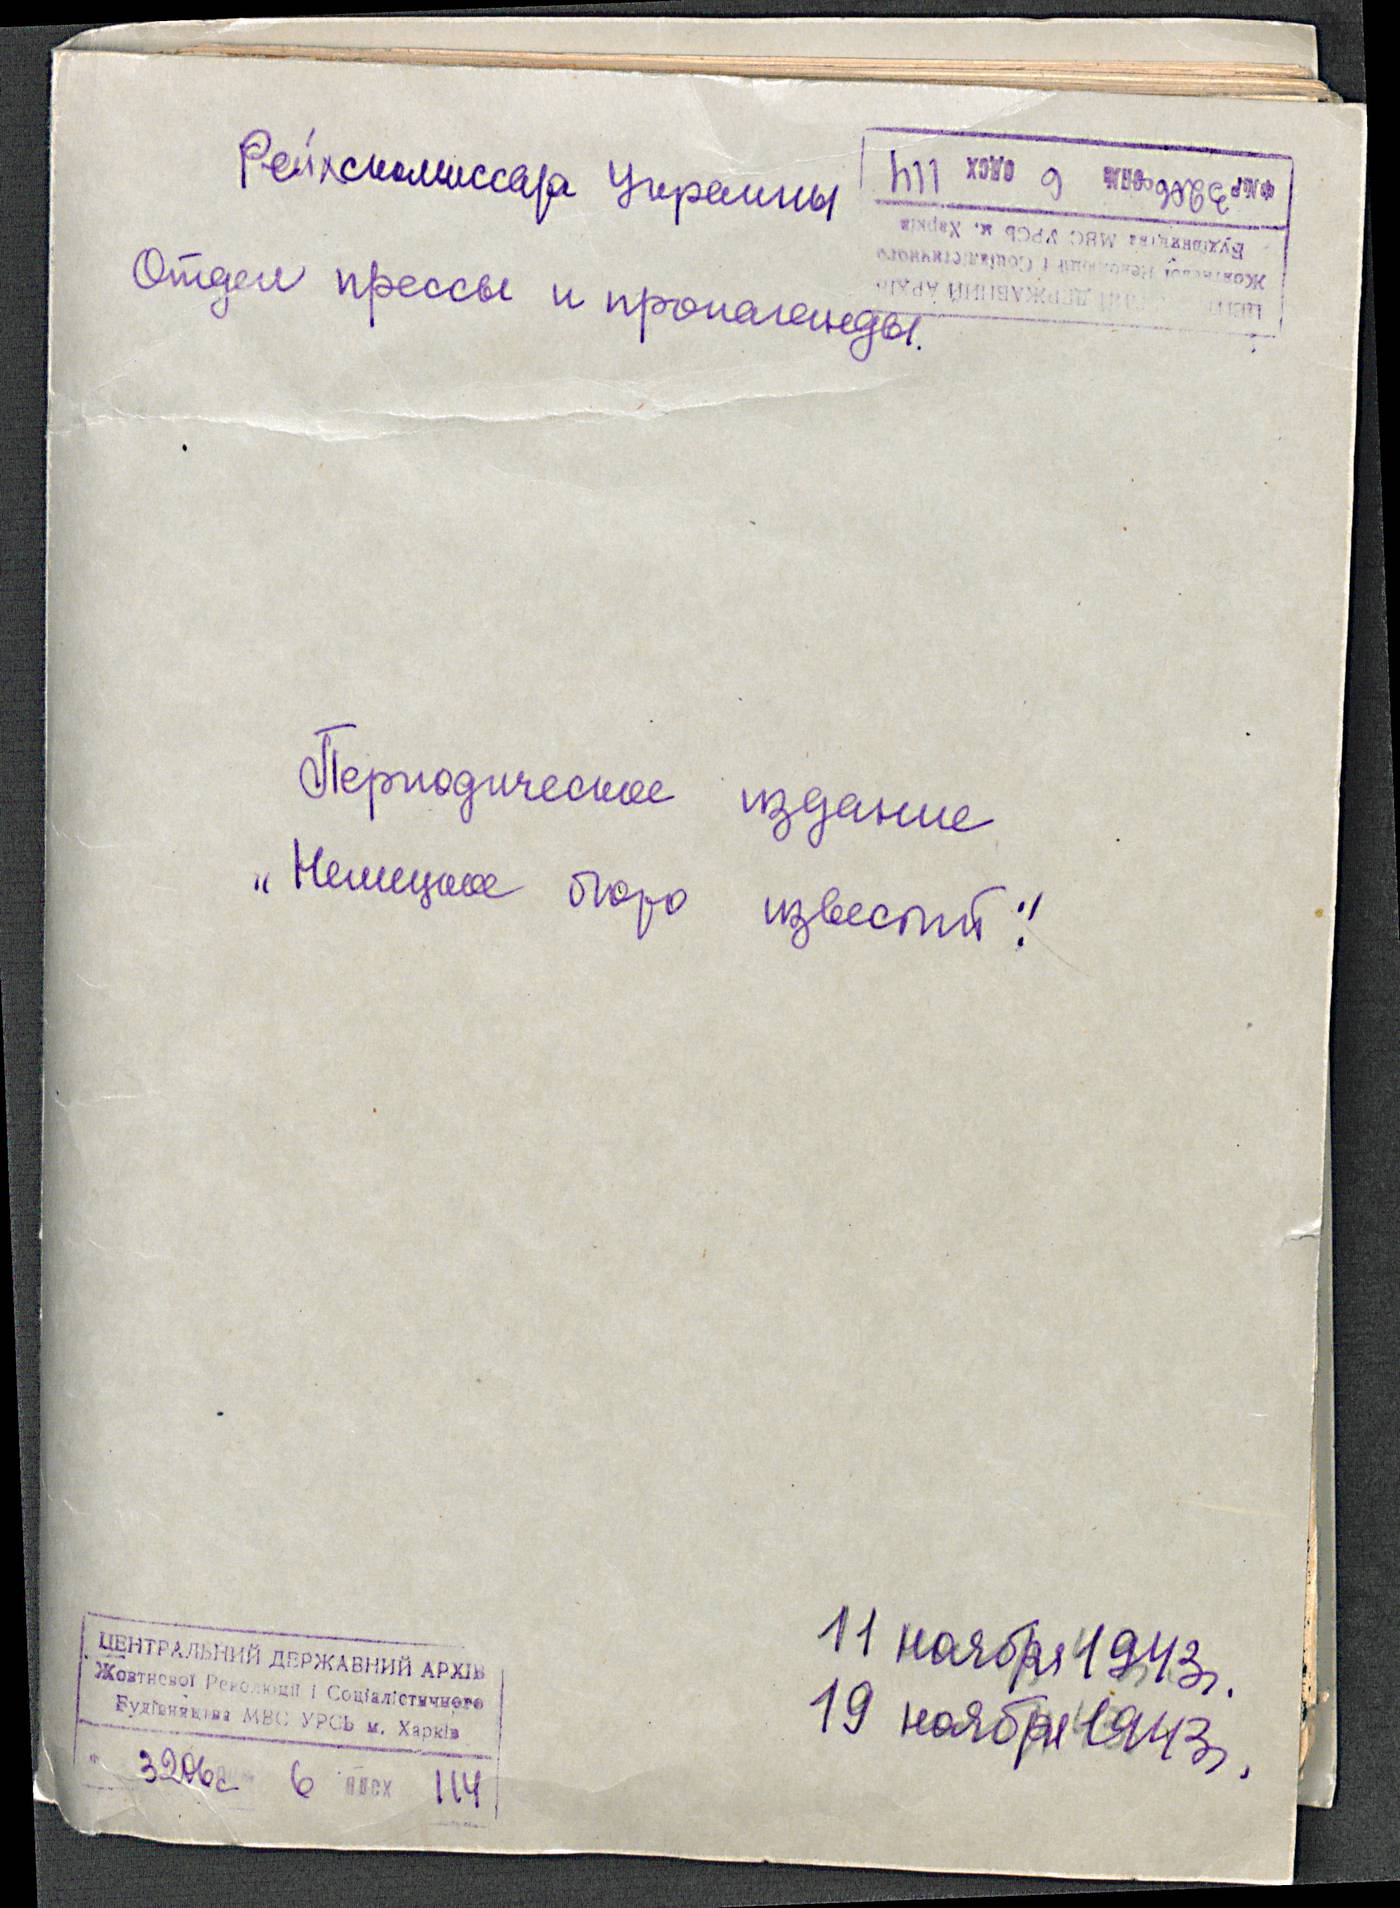 Рейхскомиссара Украины
Отдел прессы и пропаганды.
ф. № 3206с опис 6 одсх 114
Будівництва МВС УРСР м. Харків
Жовтневої Революції і Соціалістичного
ДЕРЖАВНИЙ АРХІВ
Периодическое издание
„Немецкое бюро известий".
11 ноября 1943г.
19 ноября 1943г.
ЦЕНТРАЛЬНИЙ ДЕРЖАВНИЙ АРХІВ
Жовтневої Революції і Соціалістичного
Будівництва МВС УРСР м. Харків
3206с 6 одсх 114